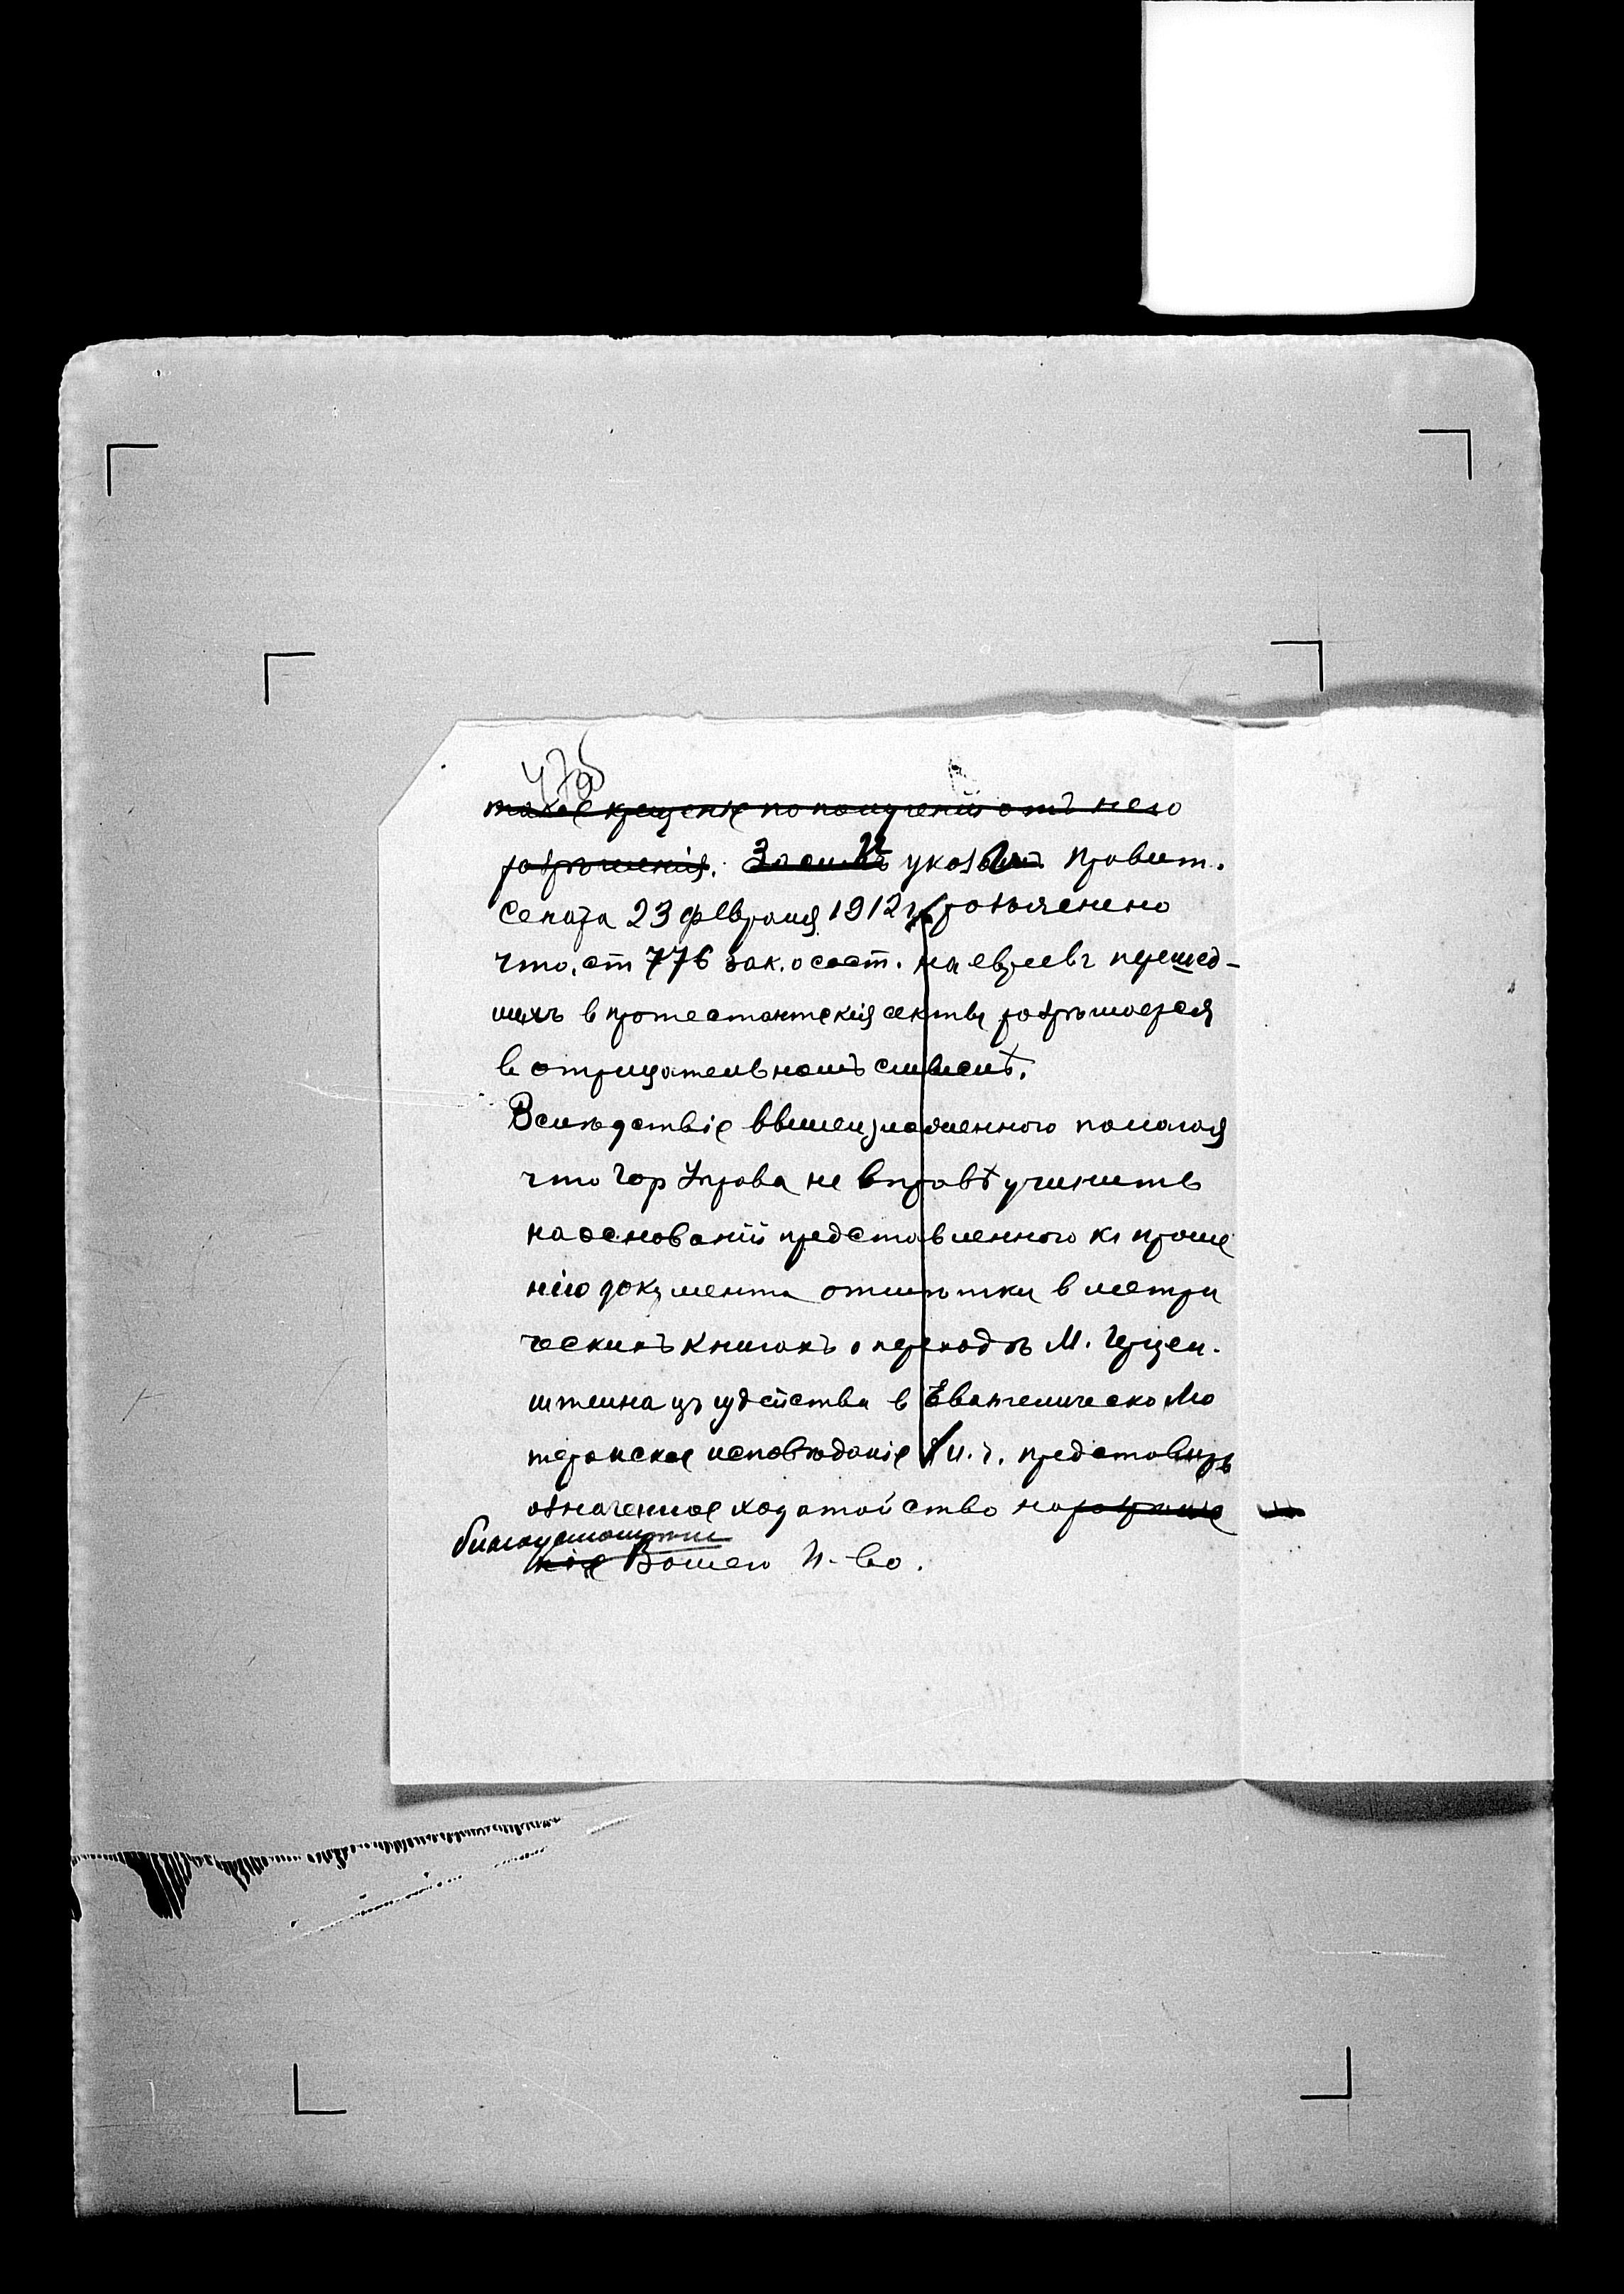 47об
такое крещеніе по полученіи отъ него
разрѣшенія. Засимъ указ Правит.
Сената 23 февраля 1912 г. разъяснено
что ст 776 зак. о сост. на евреевъ перешед-
шихъ в протестантскія секты разрѣшается
в отрицательномъ смыслѣ.
Вслѣдствіе вышеизложенного полагая
что Гор Управа не вправѣ учинить
на основаніи представленного къ проше
нію документа отмѣтки в метри
ческихъ книгахъ о переходѣ М. Герцен.
штейна изъ іудейства в Евангелическо Лю
теранское исповѣданіе и. ч. представить
означенное ходатайство на разрѣше
благоусмотрѣніе
ніе Вашего П-во.